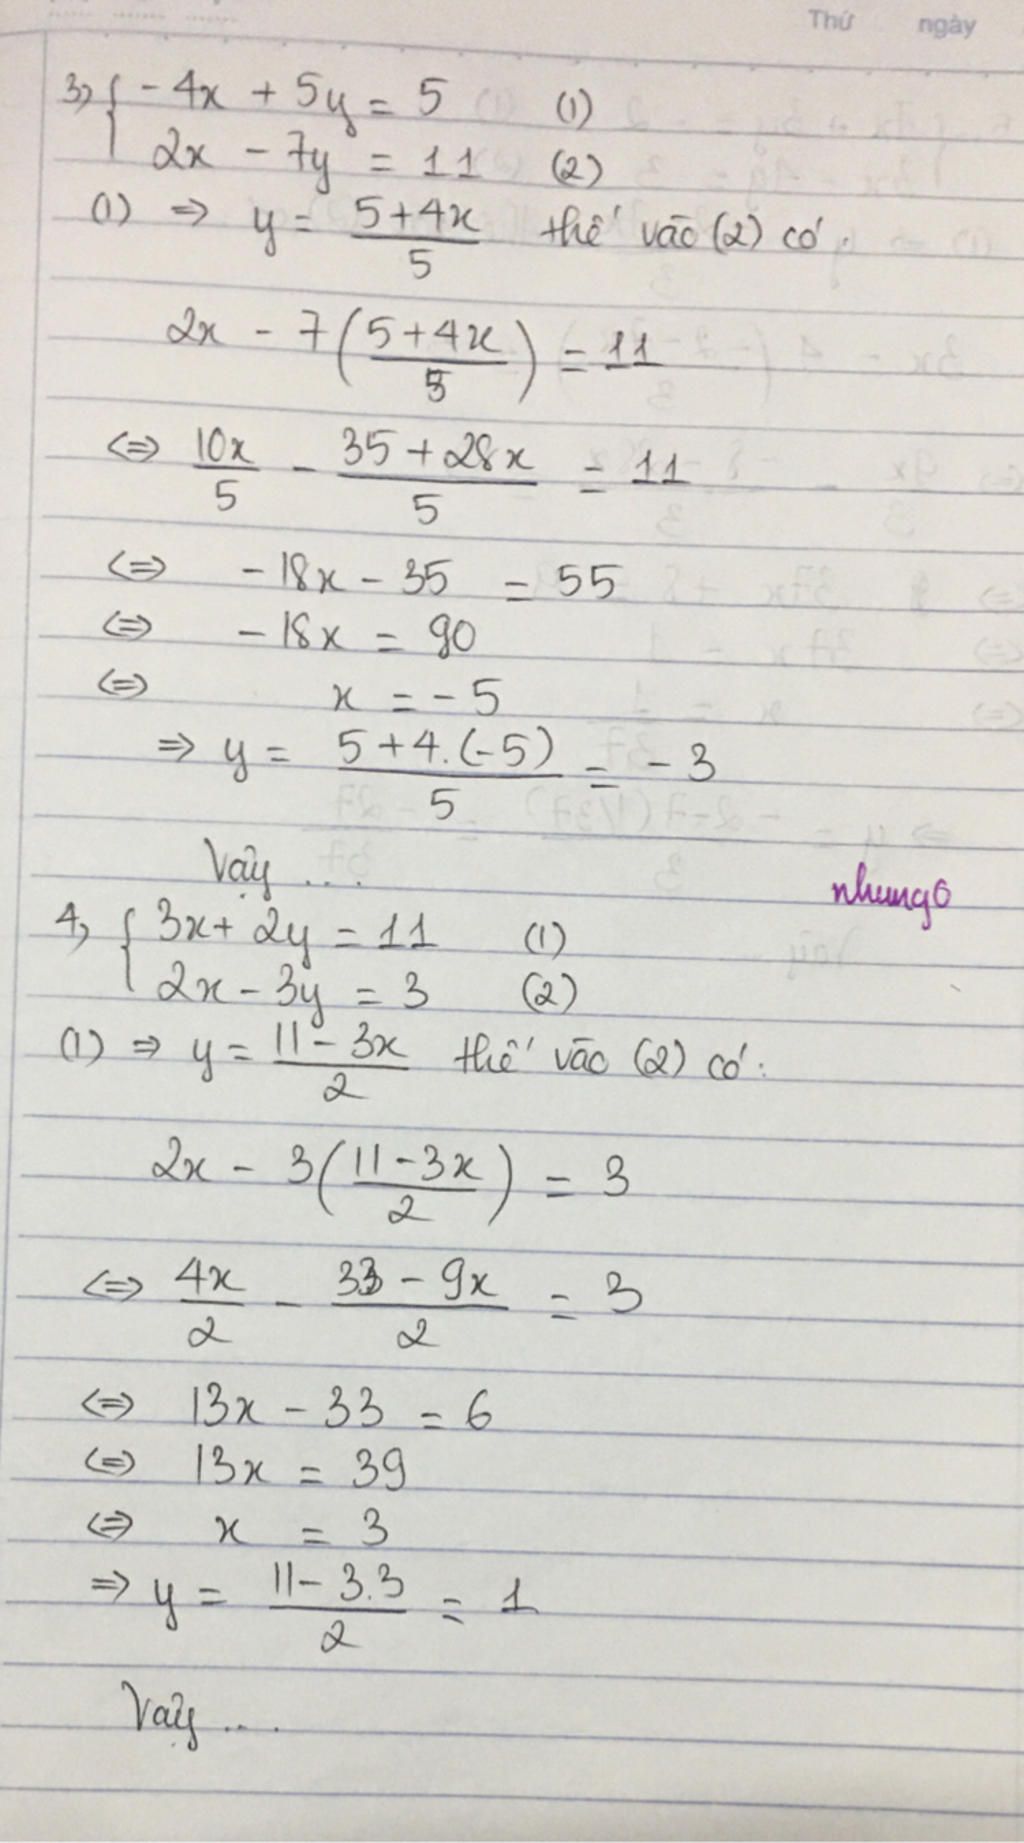 Thứ ngày
3, { - 4x + 5y = 5 (1)
2x - 7y = 11 (2)
(1) => y = (5+4x)/5 thế vào (2) có.
2x - 7((5+4x)/5) = 11
<=> 10x/5 - (35+28x)/5 = 11
<=> -18x - 35 = 55
<=> -18x = 90
<=> x = -5
=> y = (5+4.(-5))/5 = -3
Vậy ....
nhung6
4, { 3x + 2y = 11 (1)
2x - 3y = 3 (2)
(1) => y = (11-3x)/2 thế vào (2) có:
2x - 3((11-3x)/2) = 3
<=> 4x/2 - (33-9x)/2 = 3
<=> 13x - 33 = 6
<=> 13x = 39
<=> x = 3
=> y = (11-3.3)/2 = 1
Vậy ....